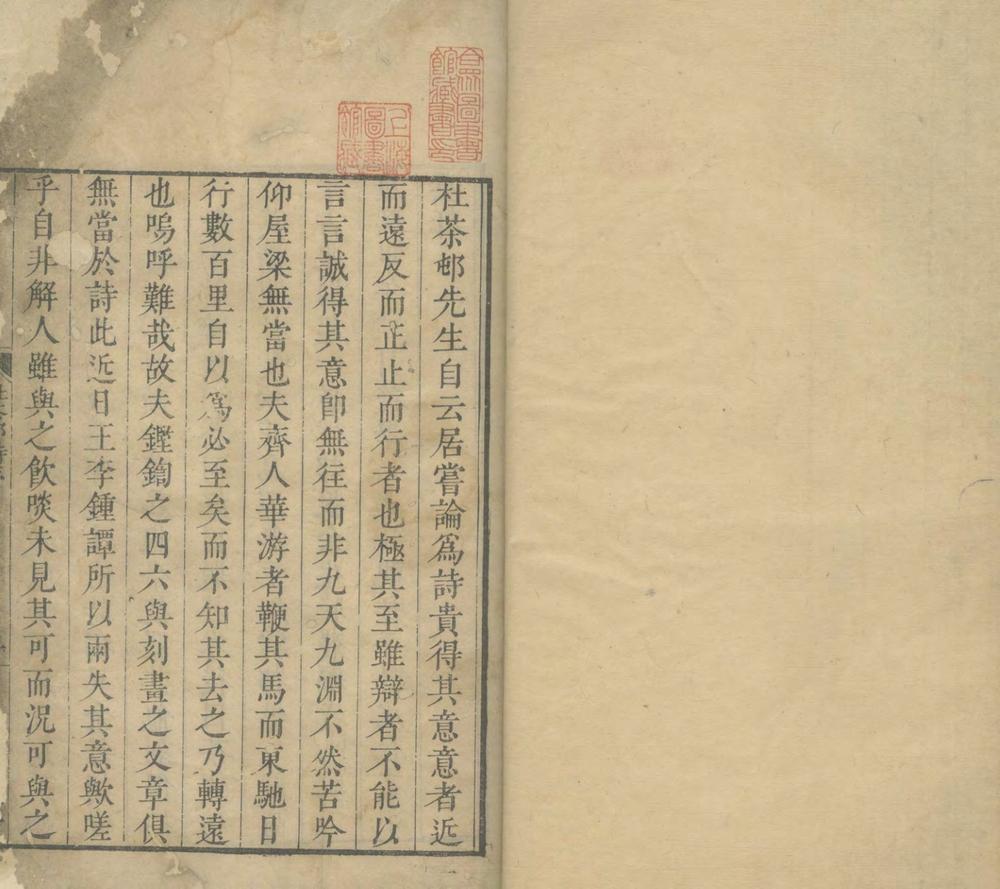 杜茶邨先生自云居嘗論爲詩貴得其意意者近
而遠反而正止而行者也極其至雖辯者不能以
言言誠得其意卽無往而非九天九淵不然苦吟
仰屋梁無當也夫齊人華游者鞭其馬而東馳日
行數百里自以爲必至矣而不知其去之乃轉遠
也嗚呼難哉故夫鏗鍧之四六與刻畫之文章俱
無當於詩此近日王李鍾譚所以兩失其意歟嗟
乎自非解人雖與之飲啖未見其可而況可與之
合眾圖書館藏書印
上海圖書館藏